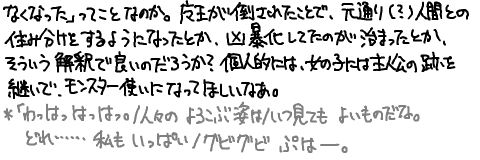 なくなった」ってことなのか。魔王が倒されたことで、元通り(?)人間との
住み分けをするようになったとか、凶暴化してたのが治まったとか、
そういう解釈で良いのだろうか?個人的には、女の子には主人公の跡を
継いで、モンスター使いになってほしいなあ。
*「わっはっはっはっ。/人々の よろこぶ姿は/いつ見ても よいものだな。
どれ……私も いっぱい/グビグビ ぷはー。